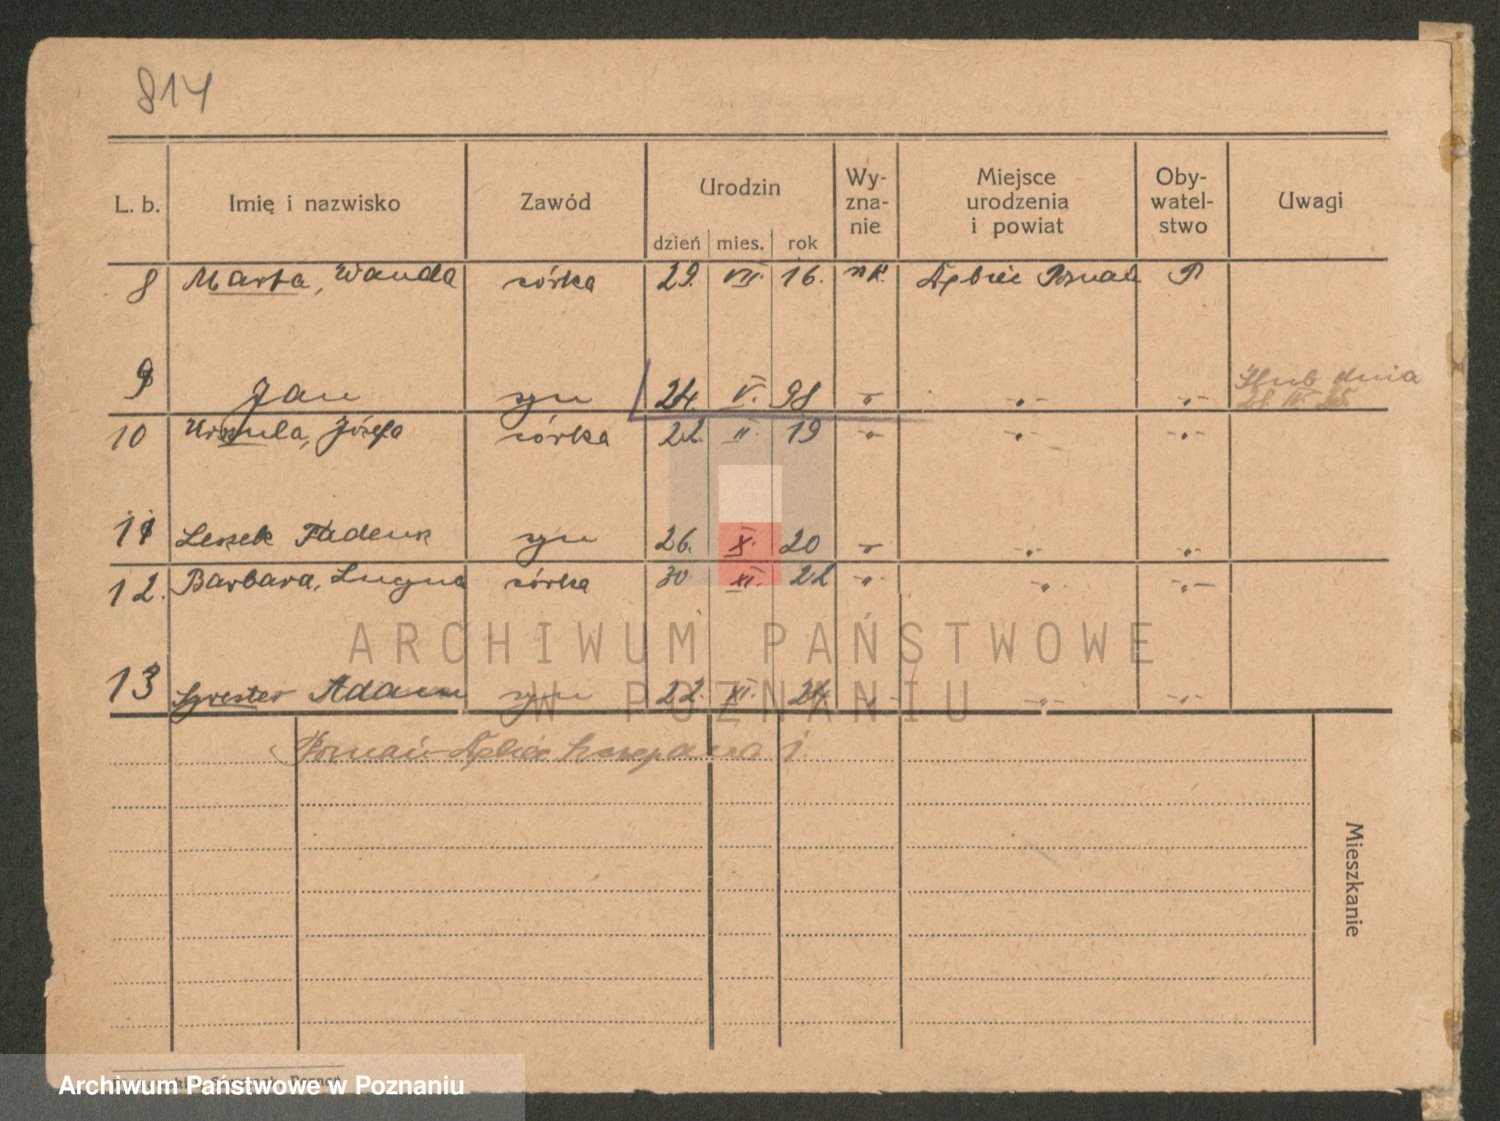 814
L. b. Imię i nazwisko Zawód Urodzin dzień mies. rok Wy-zna-nie Miejsce urodzenia i powiat Oby-watel-stwo Uwagi
8 Marta, Wanda córka 29. VII. 16. rk. Dębiec Poznań P
9 Jan syn 24. V. 98 -"- -"- -"- Ślub dnia
10 Urszula, Józefa córka 22. II. 19 -"- -"- -"-
11 Leszek Tadeusz syn 26. X. 20 -"- -"- -"-
12. Barbara, Lucyna córka 30 XI. 22 -"- -"- -"-
13 Sywester Adam syn 22. XI. 24 -"- -"- -"-
ARCHIWUM PAŃSTWOWE
W POZNANIU
Poznań-Dębiec 1.
Mieszkanie
Archiwum Państwowe w Poznaniu